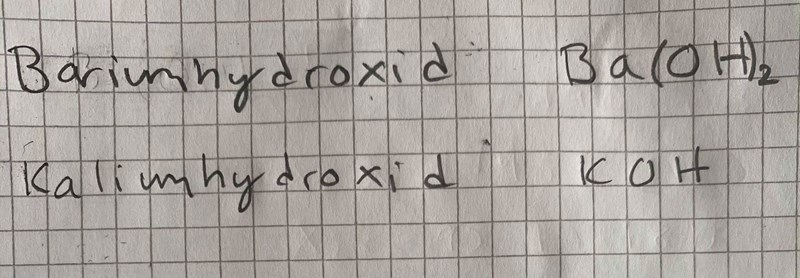 Bariumhydroxid Ba(OH)₂
Kaliumhydroxid KOH